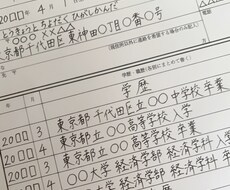 20○○年 4月 1
とうきょうと ちよだく ひがしかんだ
〒○○○ ××△△
東京都千代田区東神田○丁目○番○号
学歴・職歴(各別にまとめて書く)
学歴
20○○ 3 東京都 千代田区立○○中学校 卒業
20○○ 4 東京都立○○高等学校 入学
20○○ 3 東京都立○○高等学校 卒業
20○○ 4 ○○大学 経済学部 経済学科 入学
○○大学 経済学部 経済学科 卒業